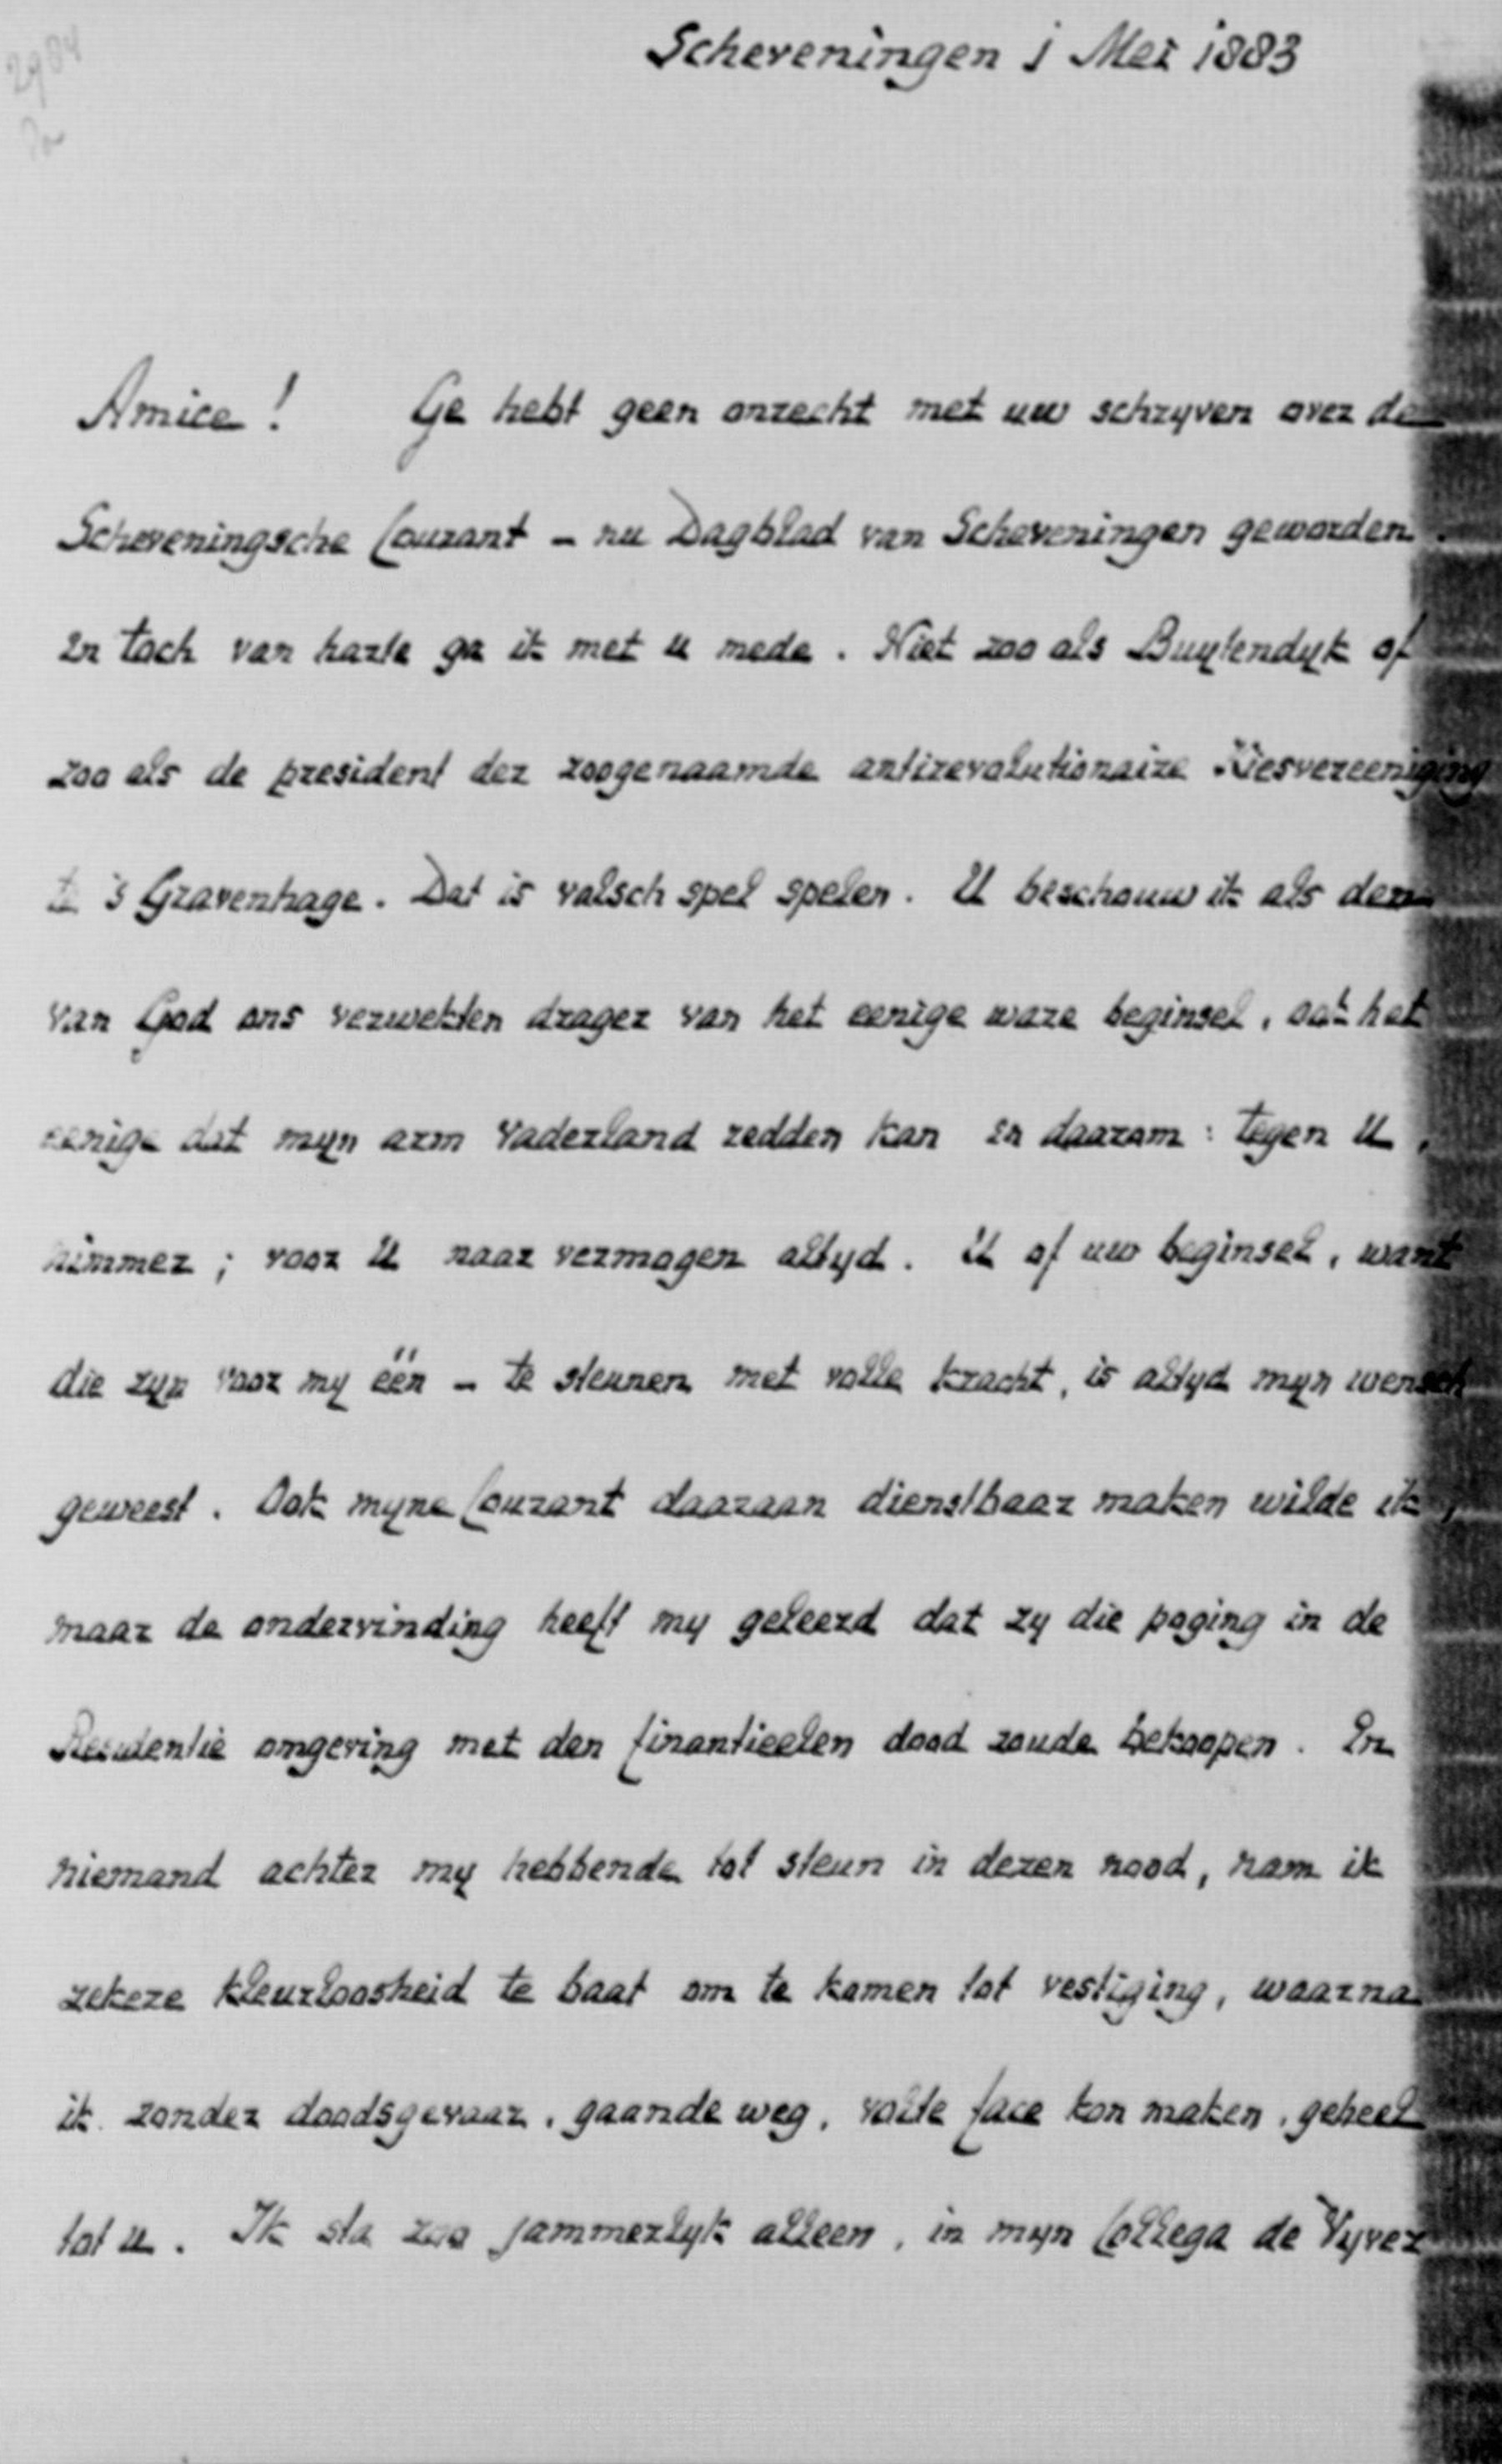 2984
Scheveningen 1 Mei 1883
Amice! Ge hebt geen onrecht met uw schryven over de
Scheveningsche Courant - nu Dagblad van Scheveningen geworden.
En toch van harte ga ik met u mede. Niet zoo als Buytendyk of
zoo als de president der zoogenaamde antirevolutionaire Kiesvereeniging
te 's Gravenhage. Dat is valsch spel spelen. U beschouw ik als den
van God ons verwekten drager van het eenige ware beginsel, ook het
eenige dat myn arm vaderland redden kan en daarom: tegen U,
nimmer; voor U naar vermogen altyd. U of uw beginsel, want
die zyn voor my één - te steunen met volle kracht, is altyd myn wensch
geweest. Ook myne Courant daaraan dienstbaar maken wilde ik,
maar de ondervinding heeft my geleerd dat zy die poging in de
Residentie omgeving met den finantieelen dood zoude bekoopen. En
niemand achter my hebbende tot steun in dezen nood, nam ik
zekere kleurloosheid te baat om te komen tot vestiging, waarna
ik zonder doodsgevaar, gaande weg, volte face kon maken, geheel
tot u. Ik sta zoo jammerlyk alleen, in myn Collega de Vyver